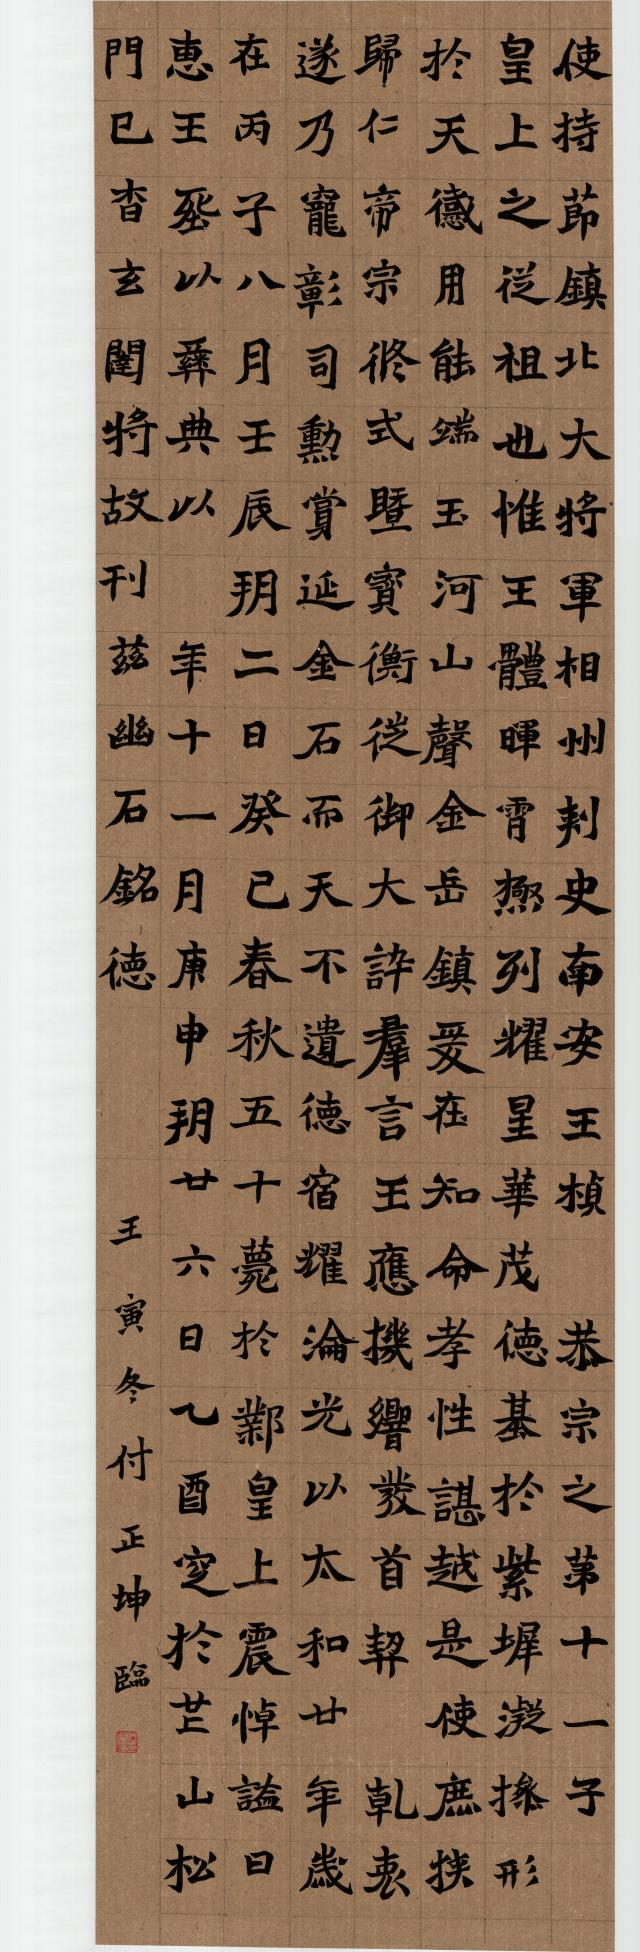 使持節鎮北大將軍相州刺史南安王楨 恭宗之第十一子
皇上之從祖也惟王體暉霄極列耀星華茂德基於紫墀凝操形
於天感用能端玉河山聲金岳鎮爰在知命孝性諶越是使庶族
歸仁帝宗攸式暨寶衡從御大許羣言王應機響發首契 乾衷
遂乃寵彰司勲賞延金石而天不遺德宿耀淪光以太和廿年歲
在丙子八月壬辰朔二日癸巳春秋五十薨於鄴皇上震悼謚曰
惠王葬以彝典以 年十一月庚申朔廿六日乙酉窆於芒山松
門已杳玄闥將故刊茲幽石銘德
王寅冬付正坤臨